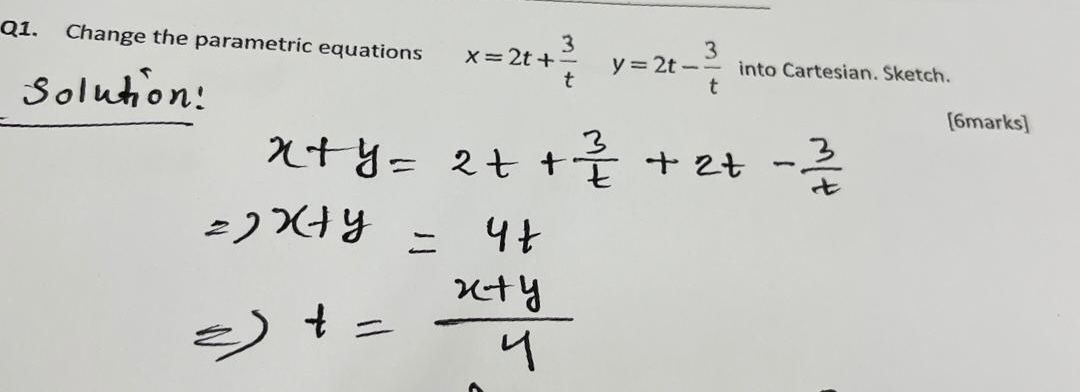 Q1. Change the parametric equations x = 2t + 3/t y = 2t - 3/t into Cartesian. Sketch.
[6marks]
Solution:
x+y = 2t + 3/t + 2t - 3/t
=> x+y = 4t
=> t = x+y/4